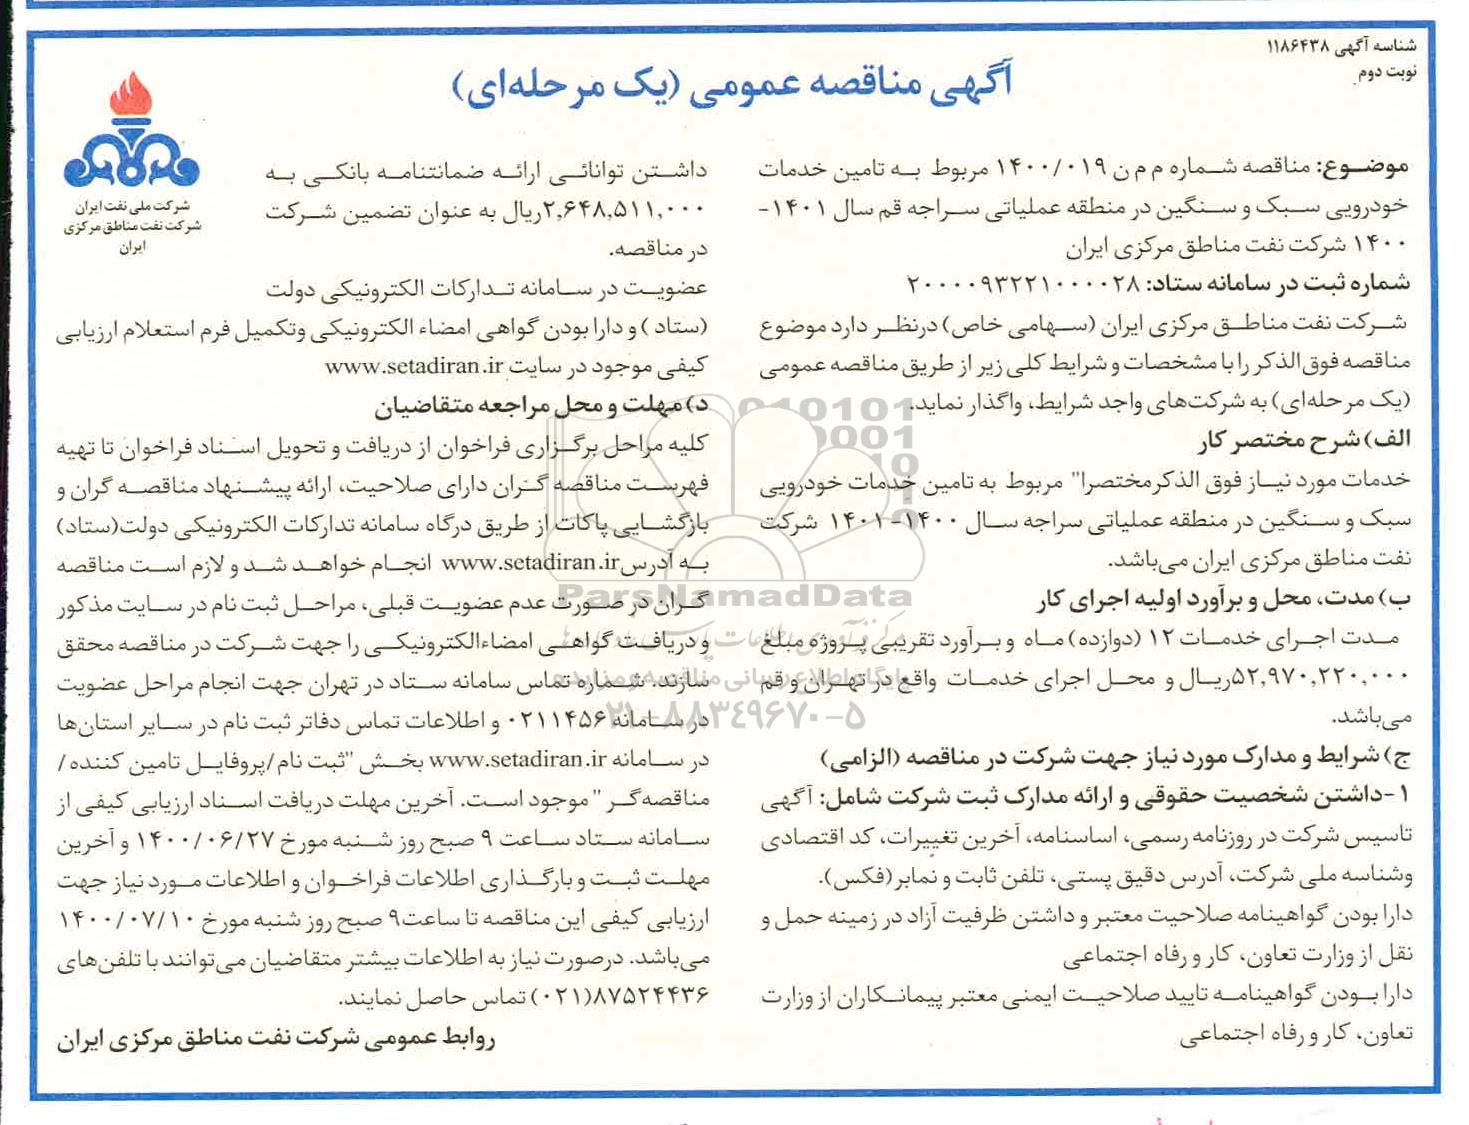 شناسه آگهی ۱۱۸۶۴۳۸
نوبت دوم
آگهی مناقصه عمومی (یک مرحله‌ای)
شرکت ملی نفت ایران
شرکت نفت مناطق مرکزی
ایران
موضوع: مناقصه شماره م م ن ۱۴۰۰/۰۱۹ مربوط به تامین خدمات
خودرویی سبک و سنگین در منطقه عملیاتی سراجه قم سال ۱۴۰۱-
۱۴۰۰ شرکت نفت مناطق مرکزی ایران
شماره ثبت در سامانه ستاد: ۲۰۰۰۰۹۳۲۲۱۰۰۰۰۲۸
شرکت نفت مناطق مرکزی ایران (سهامی خاص) درنظر دارد موضوع
مناقصه فوق‌الذکر را با مشخصات و شرایط کلی زیر از طریق مناقصه عمومی
(یک مرحله‌ای) به شرکت‌های واجد شرایط، واگذار نماید.
الف) شرح مختصر کار
خدمات مورد نیاز فوق الذکرمختصرا" مربوط به تامین خدمات خودرویی
سبک و سنگین در منطقه عملیاتی سراجه سال ۱۴۰۰-۱۴۰۱ شرکت
نفت مناطق مرکزی ایران می‌باشد.
ب) مدت، محل و برآورد اولیه اجرای کار
مدت اجرای خدمات ۱۲ (دوازده) ماه و برآورد تقریبی پروژه مبلغ
۵۲,۹۷۰,۲۲۰,۰۰۰ریال و محل اجرای خدمات واقع در تهران و قم
می‌باشد.
ج) شرایط و مدارک مورد نیاز جهت شرکت در مناقصه (الزامی)
۱-داشتن شخصیت حقوقی و ارائه مدارک ثبت شرکت شامل: آگهی
تاسیس شرکت در روزنامه رسمی، اساسنامه، آخرین تغییرات، کد اقتصادی
وشناسه ملی شرکت، آدرس دقیق پستی، تلفن ثابت و نمابر(فکس).
دارا بودن گواهینامه صلاحیت معتبر و داشتن ظرفیت آزاد در زمینه حمل و
نقل از وزارت تعاون، کار و رفاه اجتماعی
دارا بودن گواهینامه تایید صلاحیت ایمنی معتبر پیمانکاران از وزارت
تعاون، کار و رفاه اجتماعی
داشتن توانائی ارائه ضمانتنامه بانکی به
۲,۶۴۸,۵۱۱,۰۰۰ریال به عنوان تضمین شرکت
در مناقصه.
عضویت در سامانه تدارکات الکترونیکی دولت
(ستاد ) و دارا بودن گواهی امضاء الکترونیکی وتکمیل فرم استعلام ارزیابی
کیفی موجود در سایت www.setadiran.ir
د) مهلت و محل مراجعه متقاضیان
کلیه مراحل برگزاری فراخوان از دریافت و تحویل اسناد فراخوان تا تهیه
فهرست مناقصه گران دارای صلاحیت، ارائه پیشنهاد مناقصه گران و
بازگشایی پاکات از طریق درگاه سامانه تدارکات الکترونیکی دولت(ستاد)
به آدرس www.setadiran.ir انجام خواهد شد و لازم است مناقصه
گران در صورت عدم عضویت قبلی، مراحل ثبت نام در سایت مذکور
و دریافت گواهی امضاءالکترونیکی را جهت شرکت در مناقصه محقق
سازند. شماره تماس سامانه ستاد در تهران جهت انجام مراحل عضویت
در سامانه ۰۲۱۱۴۵۶ و اطلاعات تماس دفاتر ثبت نام در سایر استان‌ها
در سامانه www.setadiran.ir بخش "ثبت نام/پروفایل تامین کننده/
مناقصه‌گر " موجود است. آخرین مهلت دریافت اسناد ارزیابی کیفی از
سامانه ستاد ساعت ۹ صبح روز شنبه مورخ ۱۴۰۰/۰۶/۲۷ و آخرین
مهلت ثبت و بارگذاری اطلاعات فراخوان و اطلاعات مورد نیاز جهت
ارزیابی کیفی این مناقصه تا ساعت۹ صبح روز شنبه مورخ ۱۴۰۰/۰۷/۱۰
می‌باشد. درصورت نیاز به اطلاعات بیشتر متقاضیان می‌توانند با تلفن‌های
۸۷۵۲۴۴۳۶(۰۲۱) تماس حاصل نمایند.
روابط عمومی شرکت نفت مناطق مرکزی ایران
ParsNamadData
پایگاه اطلاع رسانی مناقصه و مزایده
۰۲۱-۸۸۳۴۹۶۷۰-۵